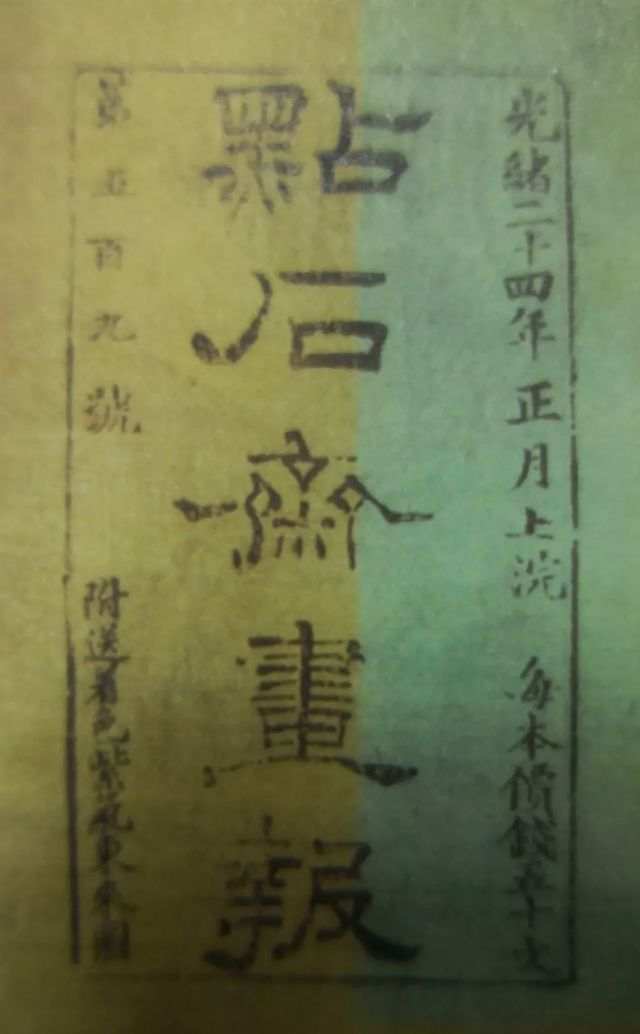 光緒二十四年正月上浣 每本價錢五十文
點石齋畫報
第五百九號
附送着色紫氣東來圖